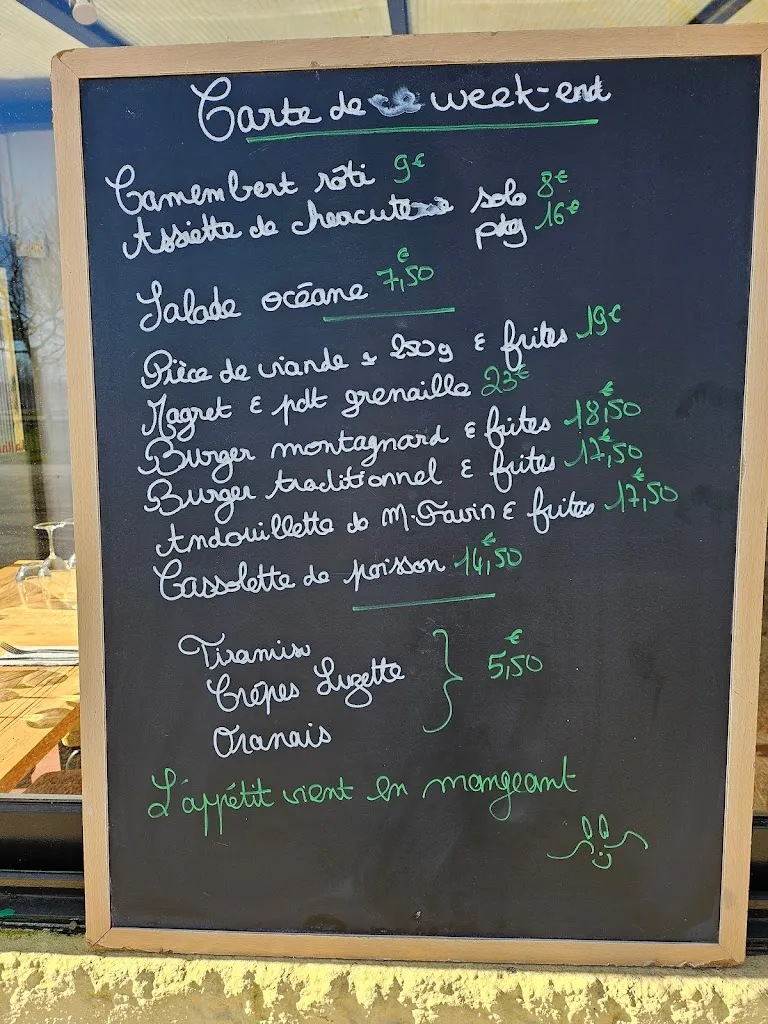 Carte de ce week-end
Camembert rôti 9€
Assiette de charcuterie solo 8€
ptg 16€
Salade océane 7,50€
Pièce de viande ± 250g & frites 19€
Magret & pdt grenaille 23€
Burger montagnard & frites 18,50€
Burger traditionnel & frites 17,50€
Andouillette de M. Favin & frites 17,50€
Cassolette de poisson 14,50€
Tiramisu
Crêpes Suzette 5,50€
Oranais
L'appétit vient en mangeant